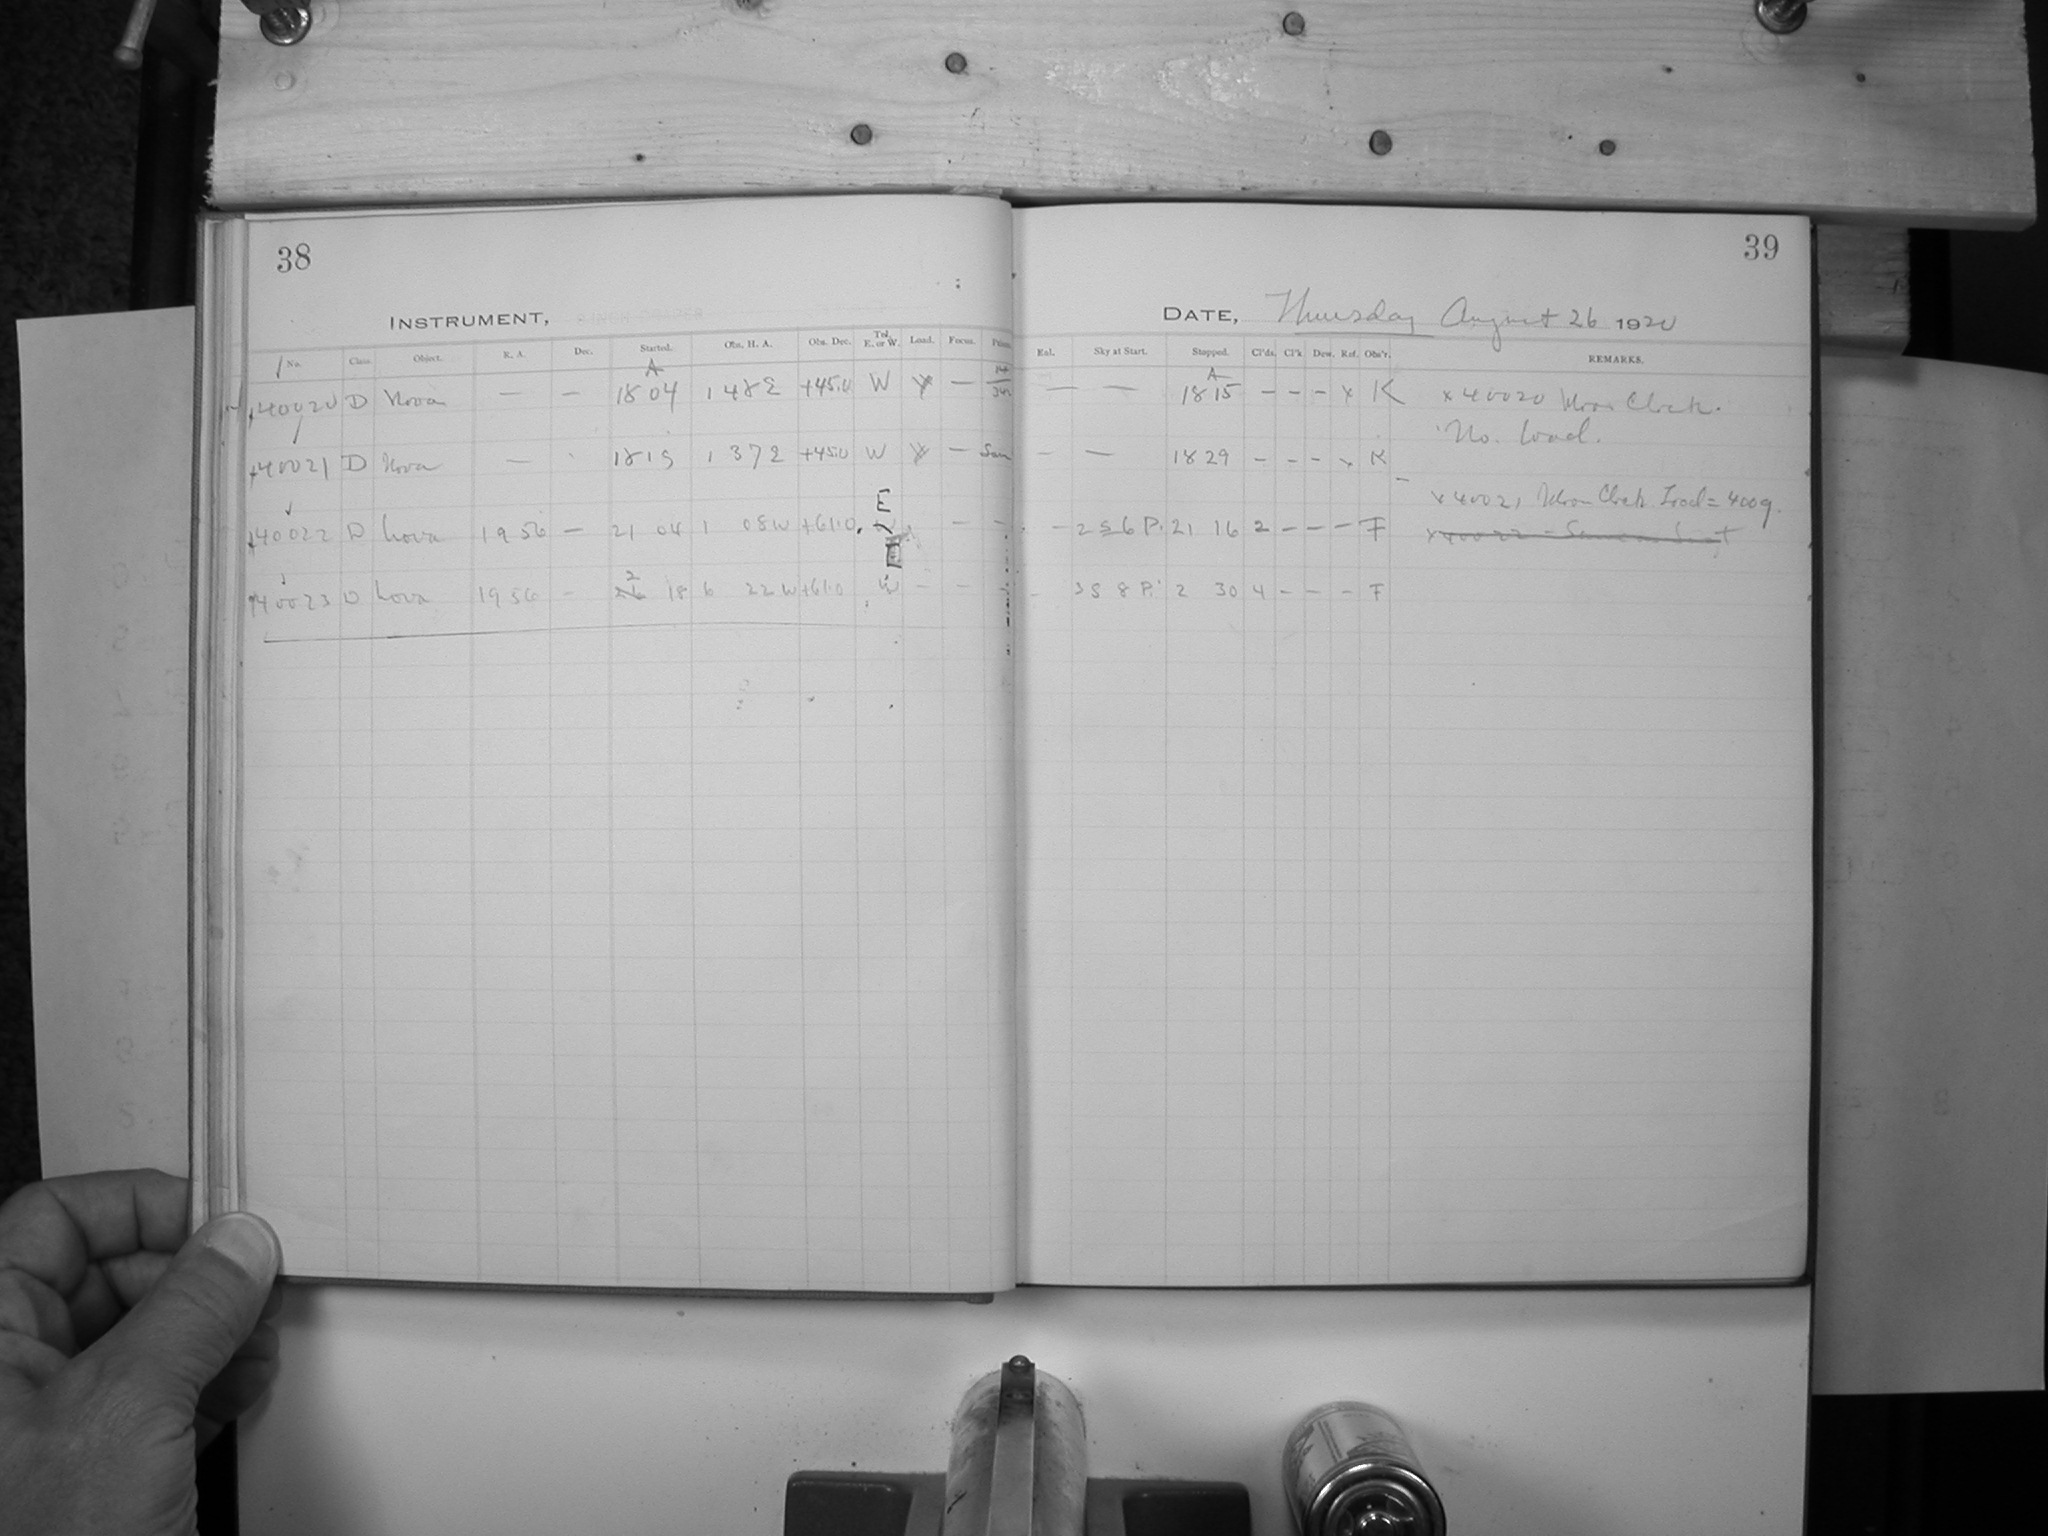 38
INSTRUMENT,
No. Class. Object. R. A. Dec. Started. Obs. H. A. Obs. Dec. Tel. E. or W. Load. Focus.
A
40020 D Nova — — 18 04 1 48 E +45.0 W —
40021 D Nova — 18 19 1 37 E +45.0 W — Same
E
40022 D Nova 19 56 — 21 04 1 08 W +61.0 — —
E
2
40023 D Nova 19 56 — 18 6 22 W +61.0 — —
39
DATE, Thursday August 26 1920
Sky at Start. Stopped. Cl'ds. Cl'k Dew. Ref. Obs'r. REMARKS.
A
— — 18 15 — — — x K x 40020 Moon Clock.
No. Load.
— — 18 29 — — — x K
x 40021 Moon Clock Load = 400g.
— 2 5 6 P. 21 16 2 — — — F x 40022 - Same as first
— 3 5 8 P. 2 30 4 — — — F